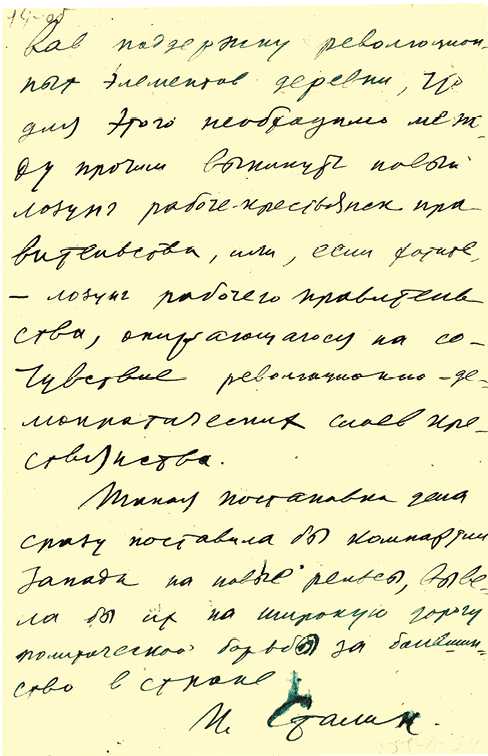 вав поддержку революцион-
ных элементов деревни, что
для этого необходимо меж-
ду прочим выкинуть новый
лозунг рабоче-крестьянск пра-
вительства, или, если хотите,
– лозунг рабочего правитель
ства, опирающагося на со-
чувствие революционно-де-
мократических слоев кре-
стьянства.
Такая постановка дела
сразу поставила бы компартии
Запада на новые рельсы, выве-
ла бы их на широкую дорогу
политической борьбы за большин-
ство в стране
И. Сталин.